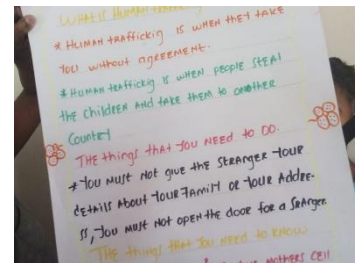 WHAT IS HUMAN
* HUMAN tRAffickig is WHEN tHEY tAKE
YOU witHout AgREEMENT.
* HUMAN tRAffickig is WHEN PEOPLE StEAl
tHE CHilDREN AND tAKE tHEM to ANotHER
Country
THE tHings tHAt YOU NEED to DO.
* YOU MUst Not givE tHE StRANgER YOUR
DEtAils About YOUR FAMilY oR YOUR ADDRE-
SS, YOU MUst Not OPEN tHE DooR foR A
THE tHings tHAt YOU NEED to KNOW
MotHERS CEll